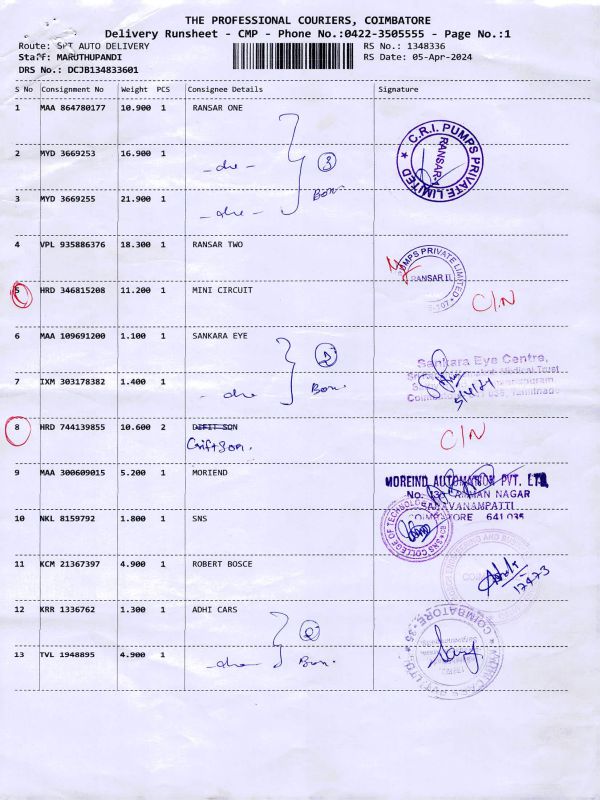 THE PROFESSIONAL COURIERS, COIMBATORE
Delivery Runsheet - CMP - Phone No.:0422-3505555 - Page No.:1
Route: SPT AUTO DELIVERY RS No.: 1348336
Staff: MARUTHUPANDI RS Date: 05-Apr-2024
DRS No.: DCJB134833601
S No Consignment No Weight PCS Consignee Details Signature
1 MAA 864780177 10.900 1 RANSAR ONE
C.R.I. PUMPS PRIVATE LIMITED RANSAR-1
2 MYD 3669253 16.900 1 -do- 3 Box.
3 MYD 3669255 21.900 1 -do-
4 VPL 935886376 18.300 1 RANSAR TWO
PUMPS PRIVATE LIMITED RANSAR II
5 HRD 346815208 11.200 1 MINI CIRCUIT C/N
6 MAA 109691200 1.100 1 SANKARA EYE 2 Box.
Sankara Eye Centre,
Medical Trust
7 IXM 303178382 1.400 1 -do- 5/4/24
641 035, Tamilnadu
8 HRD 744139855 10.600 2 DIFIT SON C/N
9 MAA 300609015 5.200 1 MORIEND
MOREIND AUTOMATION PVT. LTD.
NAGAR
SARAVANAMPATTI
COIMBATORE 641 035
10 NKL 8159792 1.800 1 SNS
SNS COLLEGE OF TECHNOLOGY
11 KCM 21367397 4.900 1 ROBERT BOSCE
17473
12 KRR 1336762 1.300 1 ADHI CARS 2
COIMBATORE - 35
13 TVL 1948895 4.900 1 -do- Box.